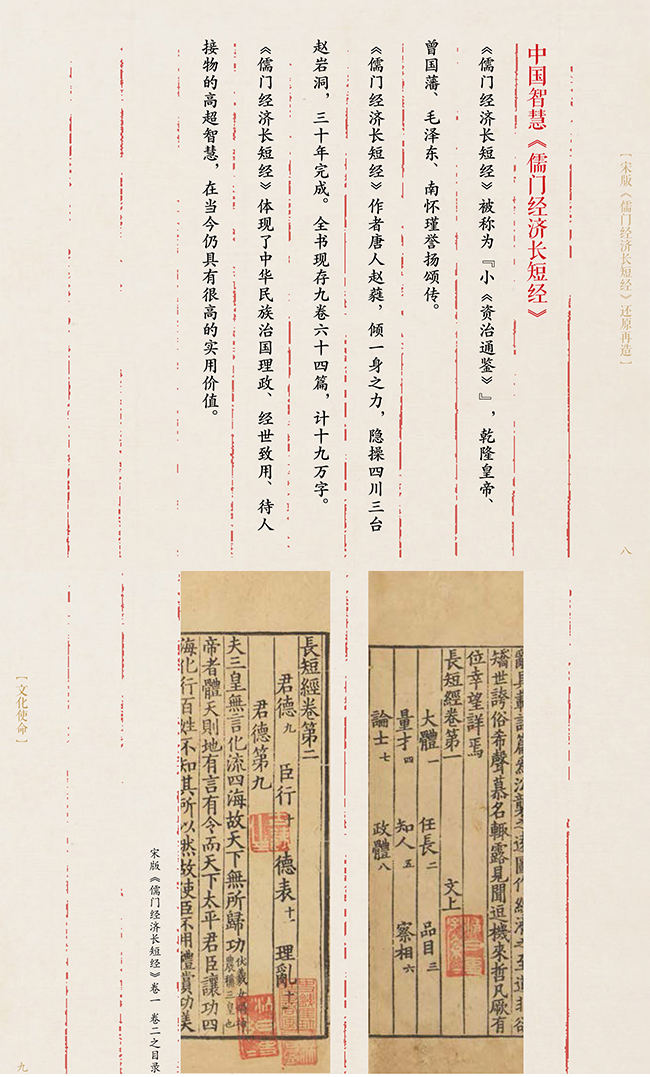 [宋版《儒门经济长短经》还原再造]
八
中国智慧《儒门经济长短经》
《儒门经济长短经》被称为『小《资治通鉴》』,乾隆皇帝、
曾国藩、毛泽东、南怀瑾誉扬颂传。
《儒门经济长短经》作者唐人赵蕤,倾一身之力,隐操四川三台
赵岩洞,三十年完成。全书现存九卷六十四篇,计十九万字。
《儒门经济长短经》体现了中华民族治国理政、经世致用、待人
接物的高超智慧,在当今仍具有很高的实用价值。
矯世誇俗希聲慕名輒露見聞逗機來哲凡厥有
位幸望詳焉
長短經卷第一 文上
大體一 任長二 品目三
量才四 知人五 察相六
論士七 政體八
長短經卷第二
君德九 臣行十 德表十一 理亂十二
君德第九
夫三皇無言化流四海故天下無所歸功
帝者體天則地有言有令而天下太平君臣讓功四
海化行百姓不知其所以然故使臣不用禮賞功美
宋版《儒门经济长短经》卷一 卷二之目录
[文化使命]
九